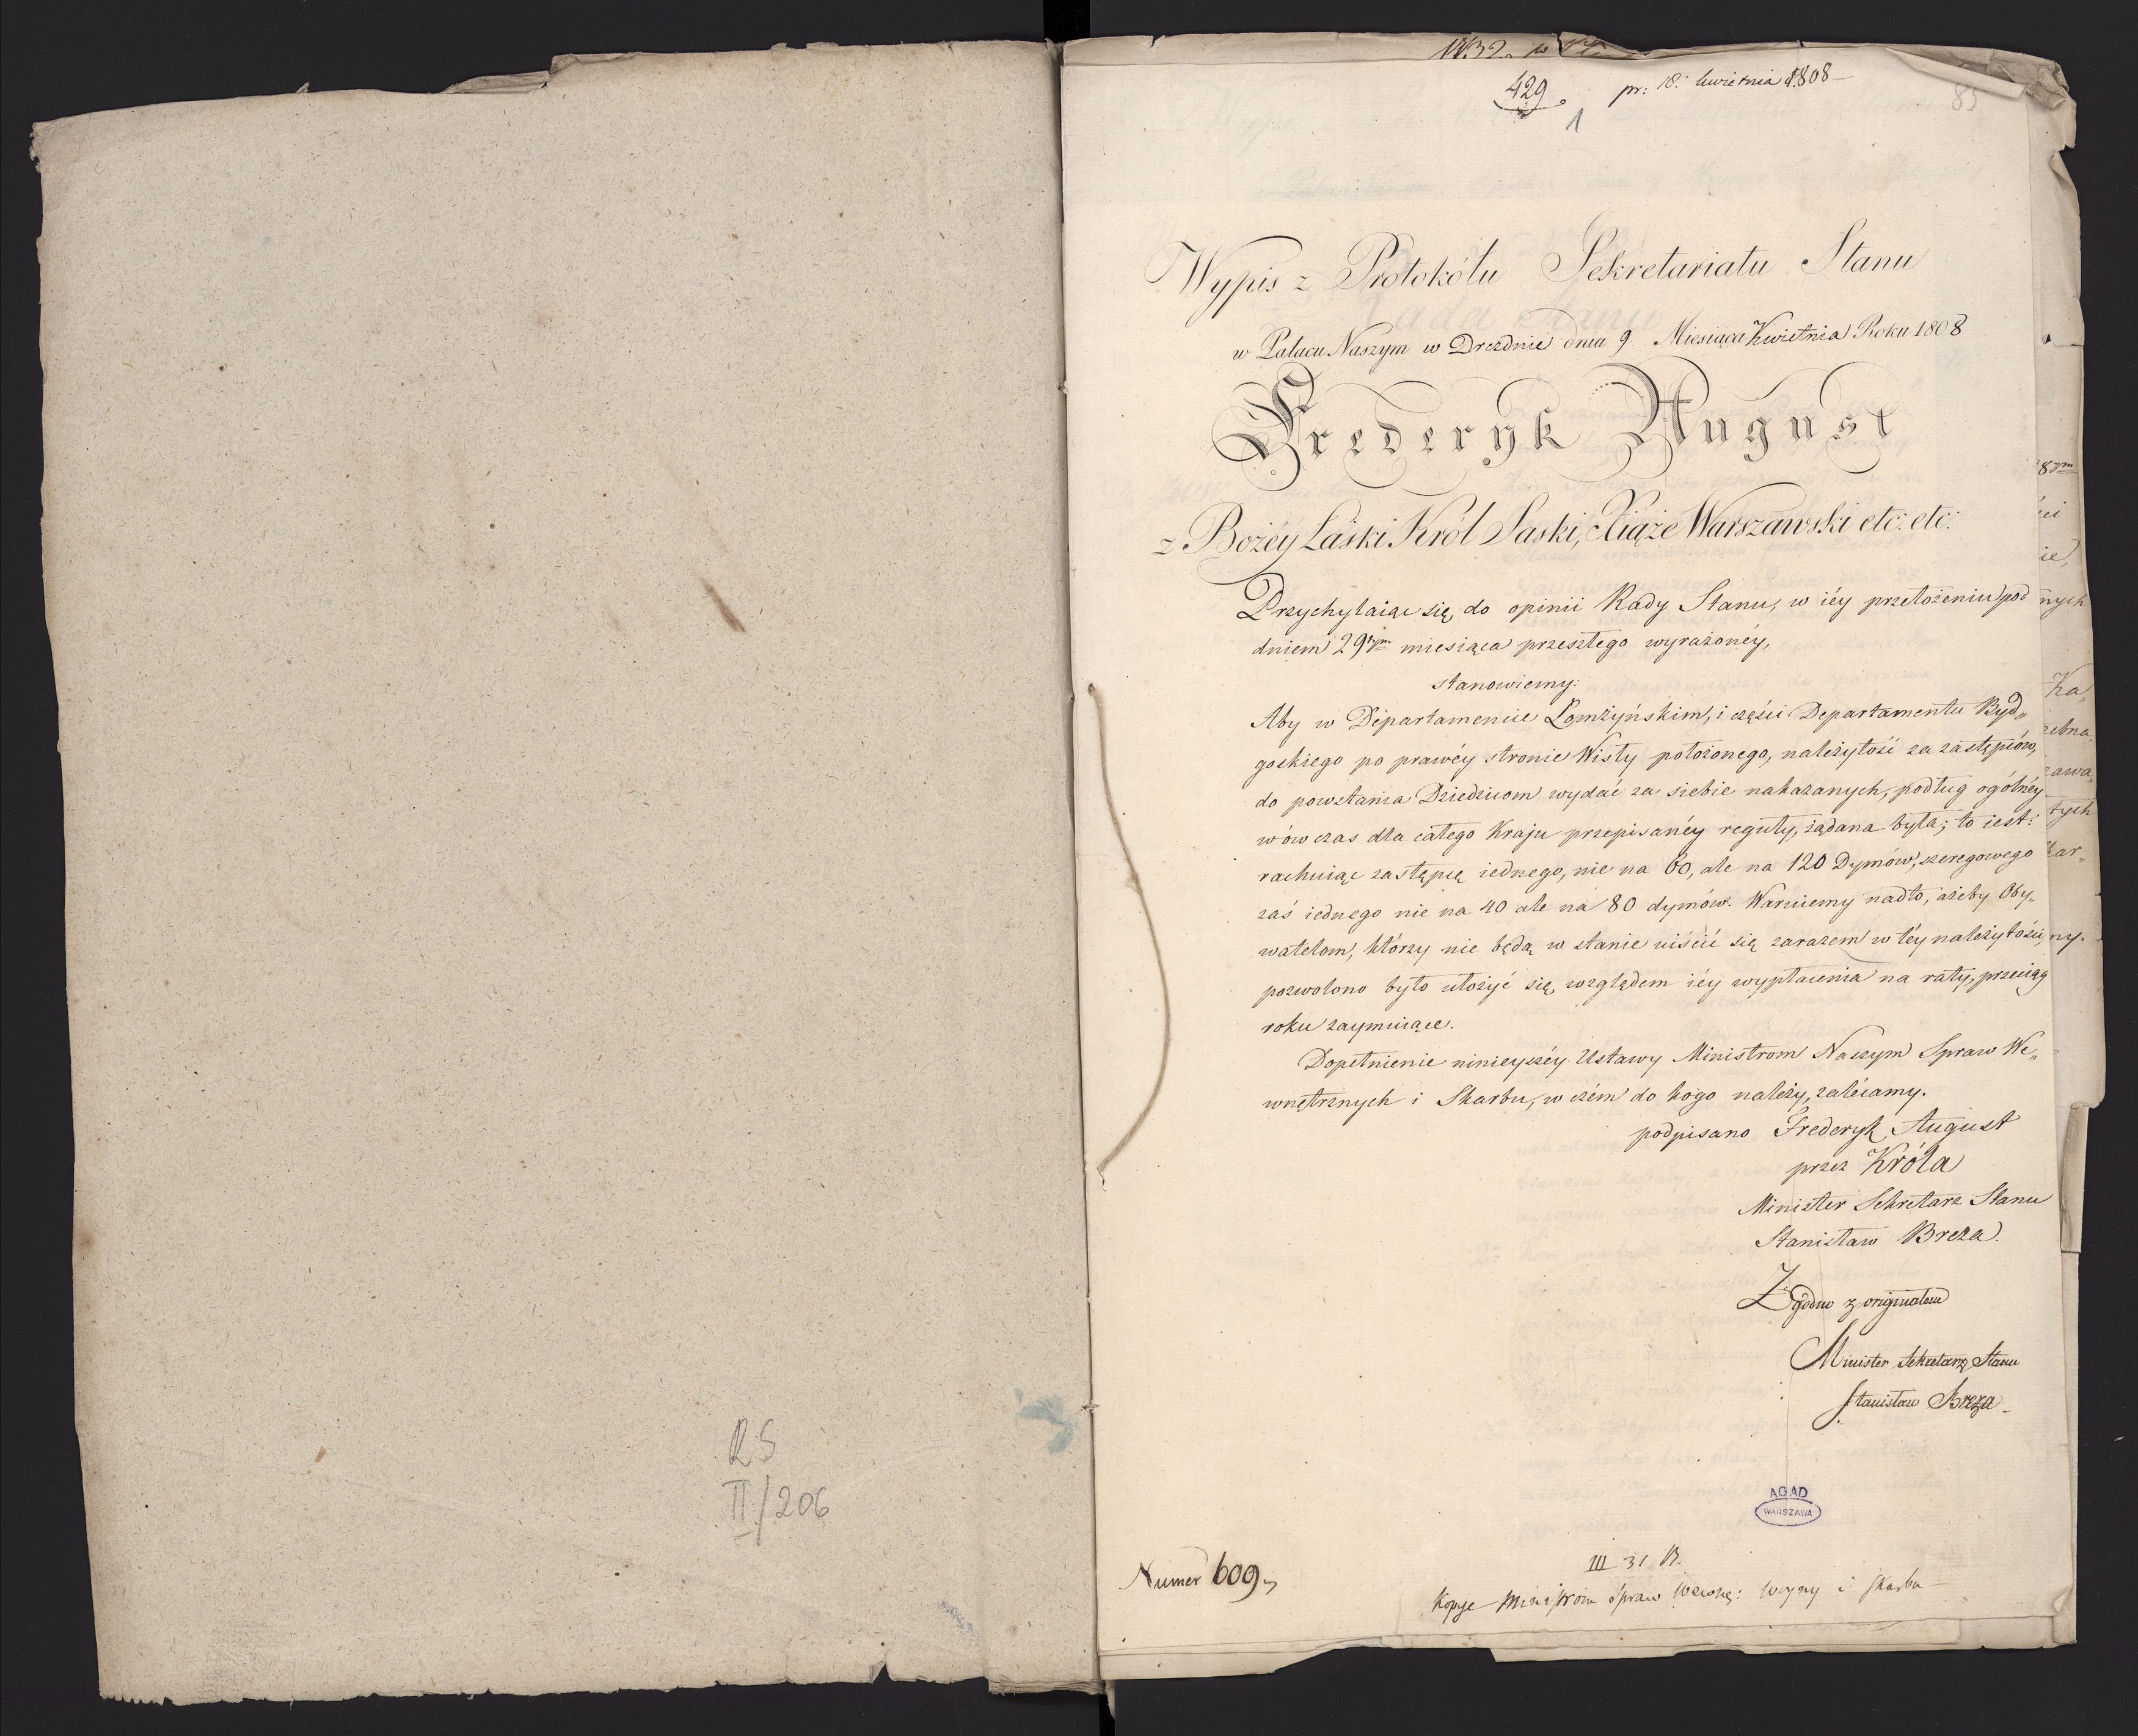 RS
II/206
429
pr: 18: kwietnia 1808
1
85
Wypis z Protokółu Sekretariatu Stanu
w Pałacu Naszym w Dreźdnie dnia 9 Miesiąca Kwietnia Roku 1808
Frederyk August
z Bożéy Łaski Król Saski, Xiąże Warszawski etc: etc:
Przychylaiąc się do opinii Rady Stanu, w iéy przełożeniu pod
dniem 29tym miesiąca przeszłego wyrażonéy,
stanowiemy:
Aby w Departamencie Łomżyńskim, i części Departamentu Byd„
goskiego po prawéy stronie Wisły położonego, należytość za zastępców,
do powstania Dziedzicom wydać za siebie nakazanych, podług ogólnéy
wówczas dla całego Kraju przepisanéy reguły, żądana była; to iest:
rachuiąc zastępcę iednego, nie na 60, ale na 120 Dymów, szeregowego
zaś iednego nie na 40 ale na 80 dymów. Waruiemy nadto, ażeby Oby„
watelom, którzy nie będą w stanie uiścić się zarazem w téy należytości,
pozwolono było ułożyć się względem iéy wypłacenia na raty, przeciąg
roku zaymuiące.
Dopełnienie ninieyszéy Ustawy Ministrom Naszym Spraw We„
wnętrznych i Skarbu, w czém do kogo należy, zalécamy.
podpisano Frederyk August
przez Króla
Minister Sekretarz Stanu
Stanisław Breza.
Zgodno z originałem
Minister Sekretarz Stanu
Stanisław Breza
AGAD
WARSZAWA
III 31 B.
Numer 609
Kopye Ministrom Spraw Wewnę: Woyny i Skarbu
8ym
ie,
nych
Ka„
zebna„
zawa„
tych
kar„
ny.